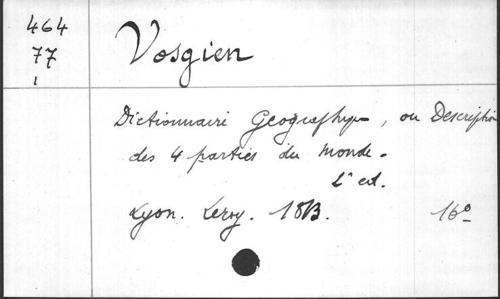 464
77
1
Vosgien
Dictionnaire Géographique, ou Description
des 4 parties du Monde.
ed.
Lyon. Leroy. 1813. 16º